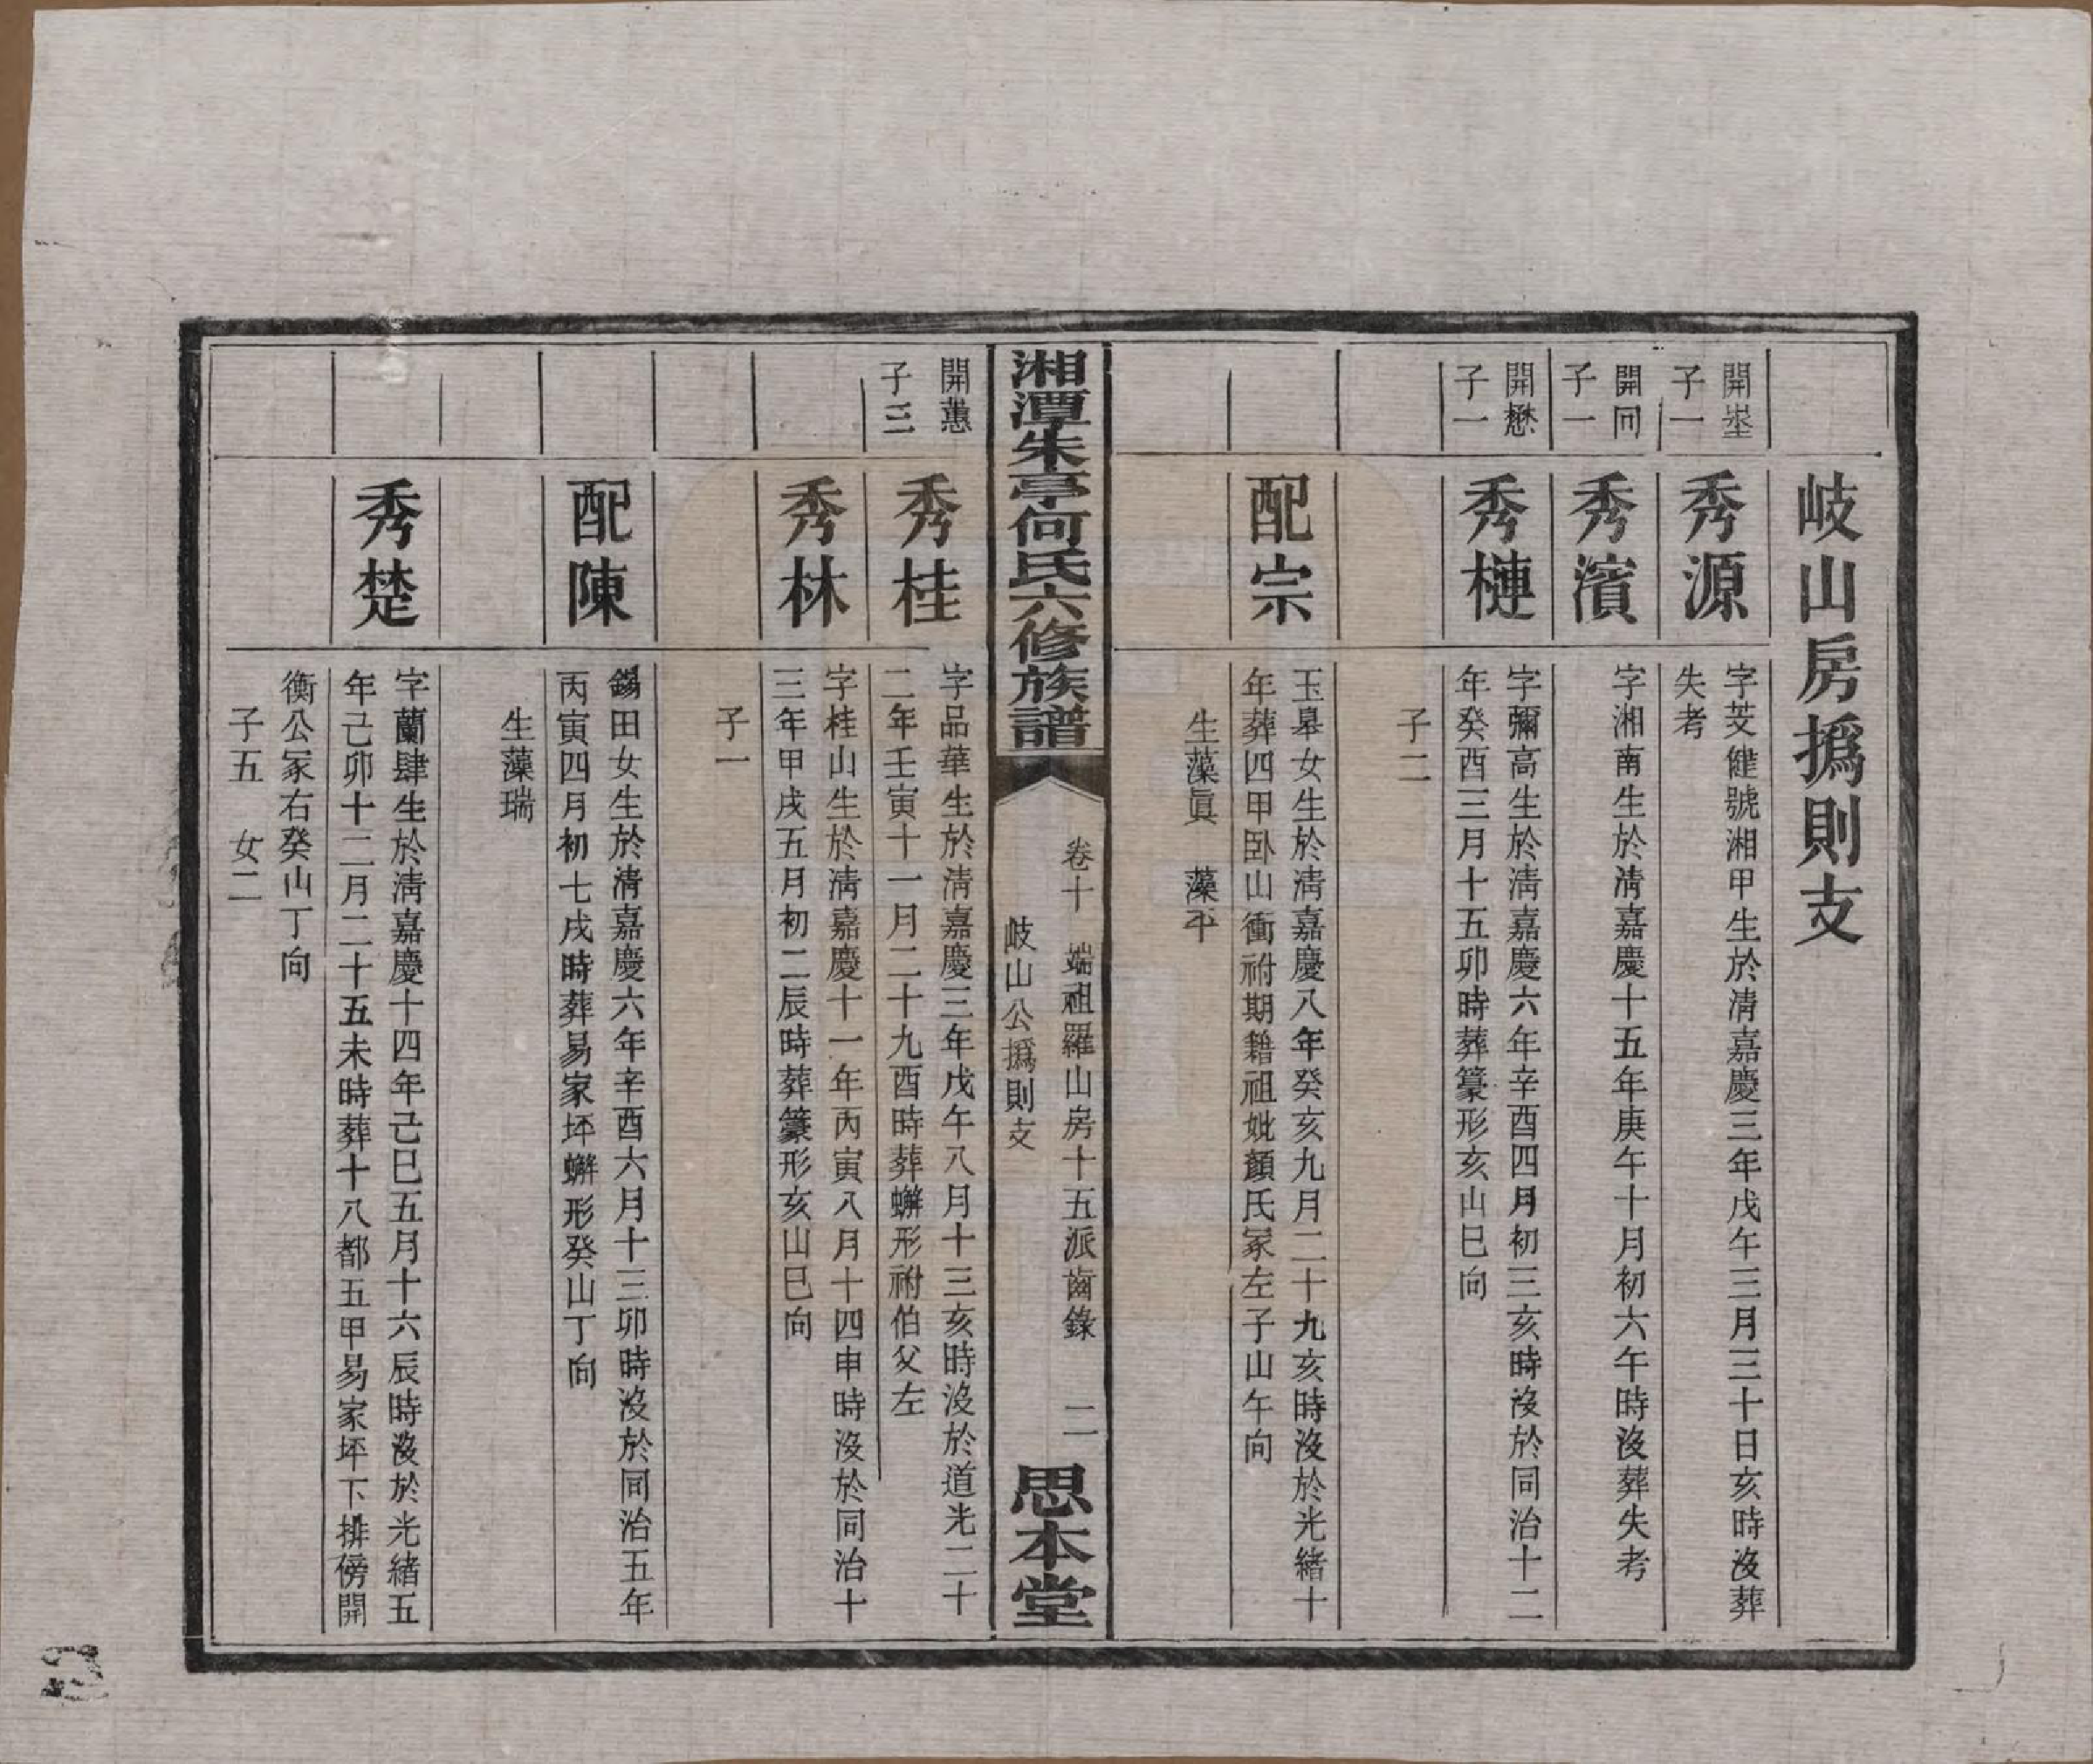 岐山房撝則支
開埊
子一
秀源
字芠䧳號湘甲生於清嘉慶三年戊午三月三十日亥時沒葬
失考
開冋
子一
秀濱
字湘南生於清嘉慶十五年庚午十月初六午時沒葬失考
開懋
子一
秀槤
字彌高生於清嘉慶六年辛酉四月初三亥時沒於同治十二
年癸酉三月十五卯時葬籇形亥山巳向
子二
配宗
玉皋女生於清嘉慶八年癸亥九月二十九亥時沒於光緒十
年葬四甲卧山衝祔期籍祖妣顏氏冢左子山午向
生藻眞 藻平
湘潭朱亭何氏六修族譜
卷十 端祖羅山房十五派齒錄 二
岐山公撝則支
思本堂
開蕙
子三
秀桂
字品華生於清嘉慶三年戊午八月十三亥時沒於道光二十
二年壬寅十一月二十九酉時葬蠏形祔伯父左
秀林
字桂山生於清嘉慶十一年丙寅八月十四申時沒於同治十
三年甲戌五月初二辰時葬籇形亥山巳向
子一
配陳
錫田女生於清嘉慶六年辛酉六月十三卯時沒於同治五年
丙寅四月初七戌時葬易家坪蠏形癸山丁向
生藻瑞
秀楚
字蘭肆生於清嘉慶十四年己巳五月十六辰時沒於光緒五
年己卯十二月二十五未時葬十八都五甲易家坪下排傍開
衡公冢右癸山丁向
子五 女二